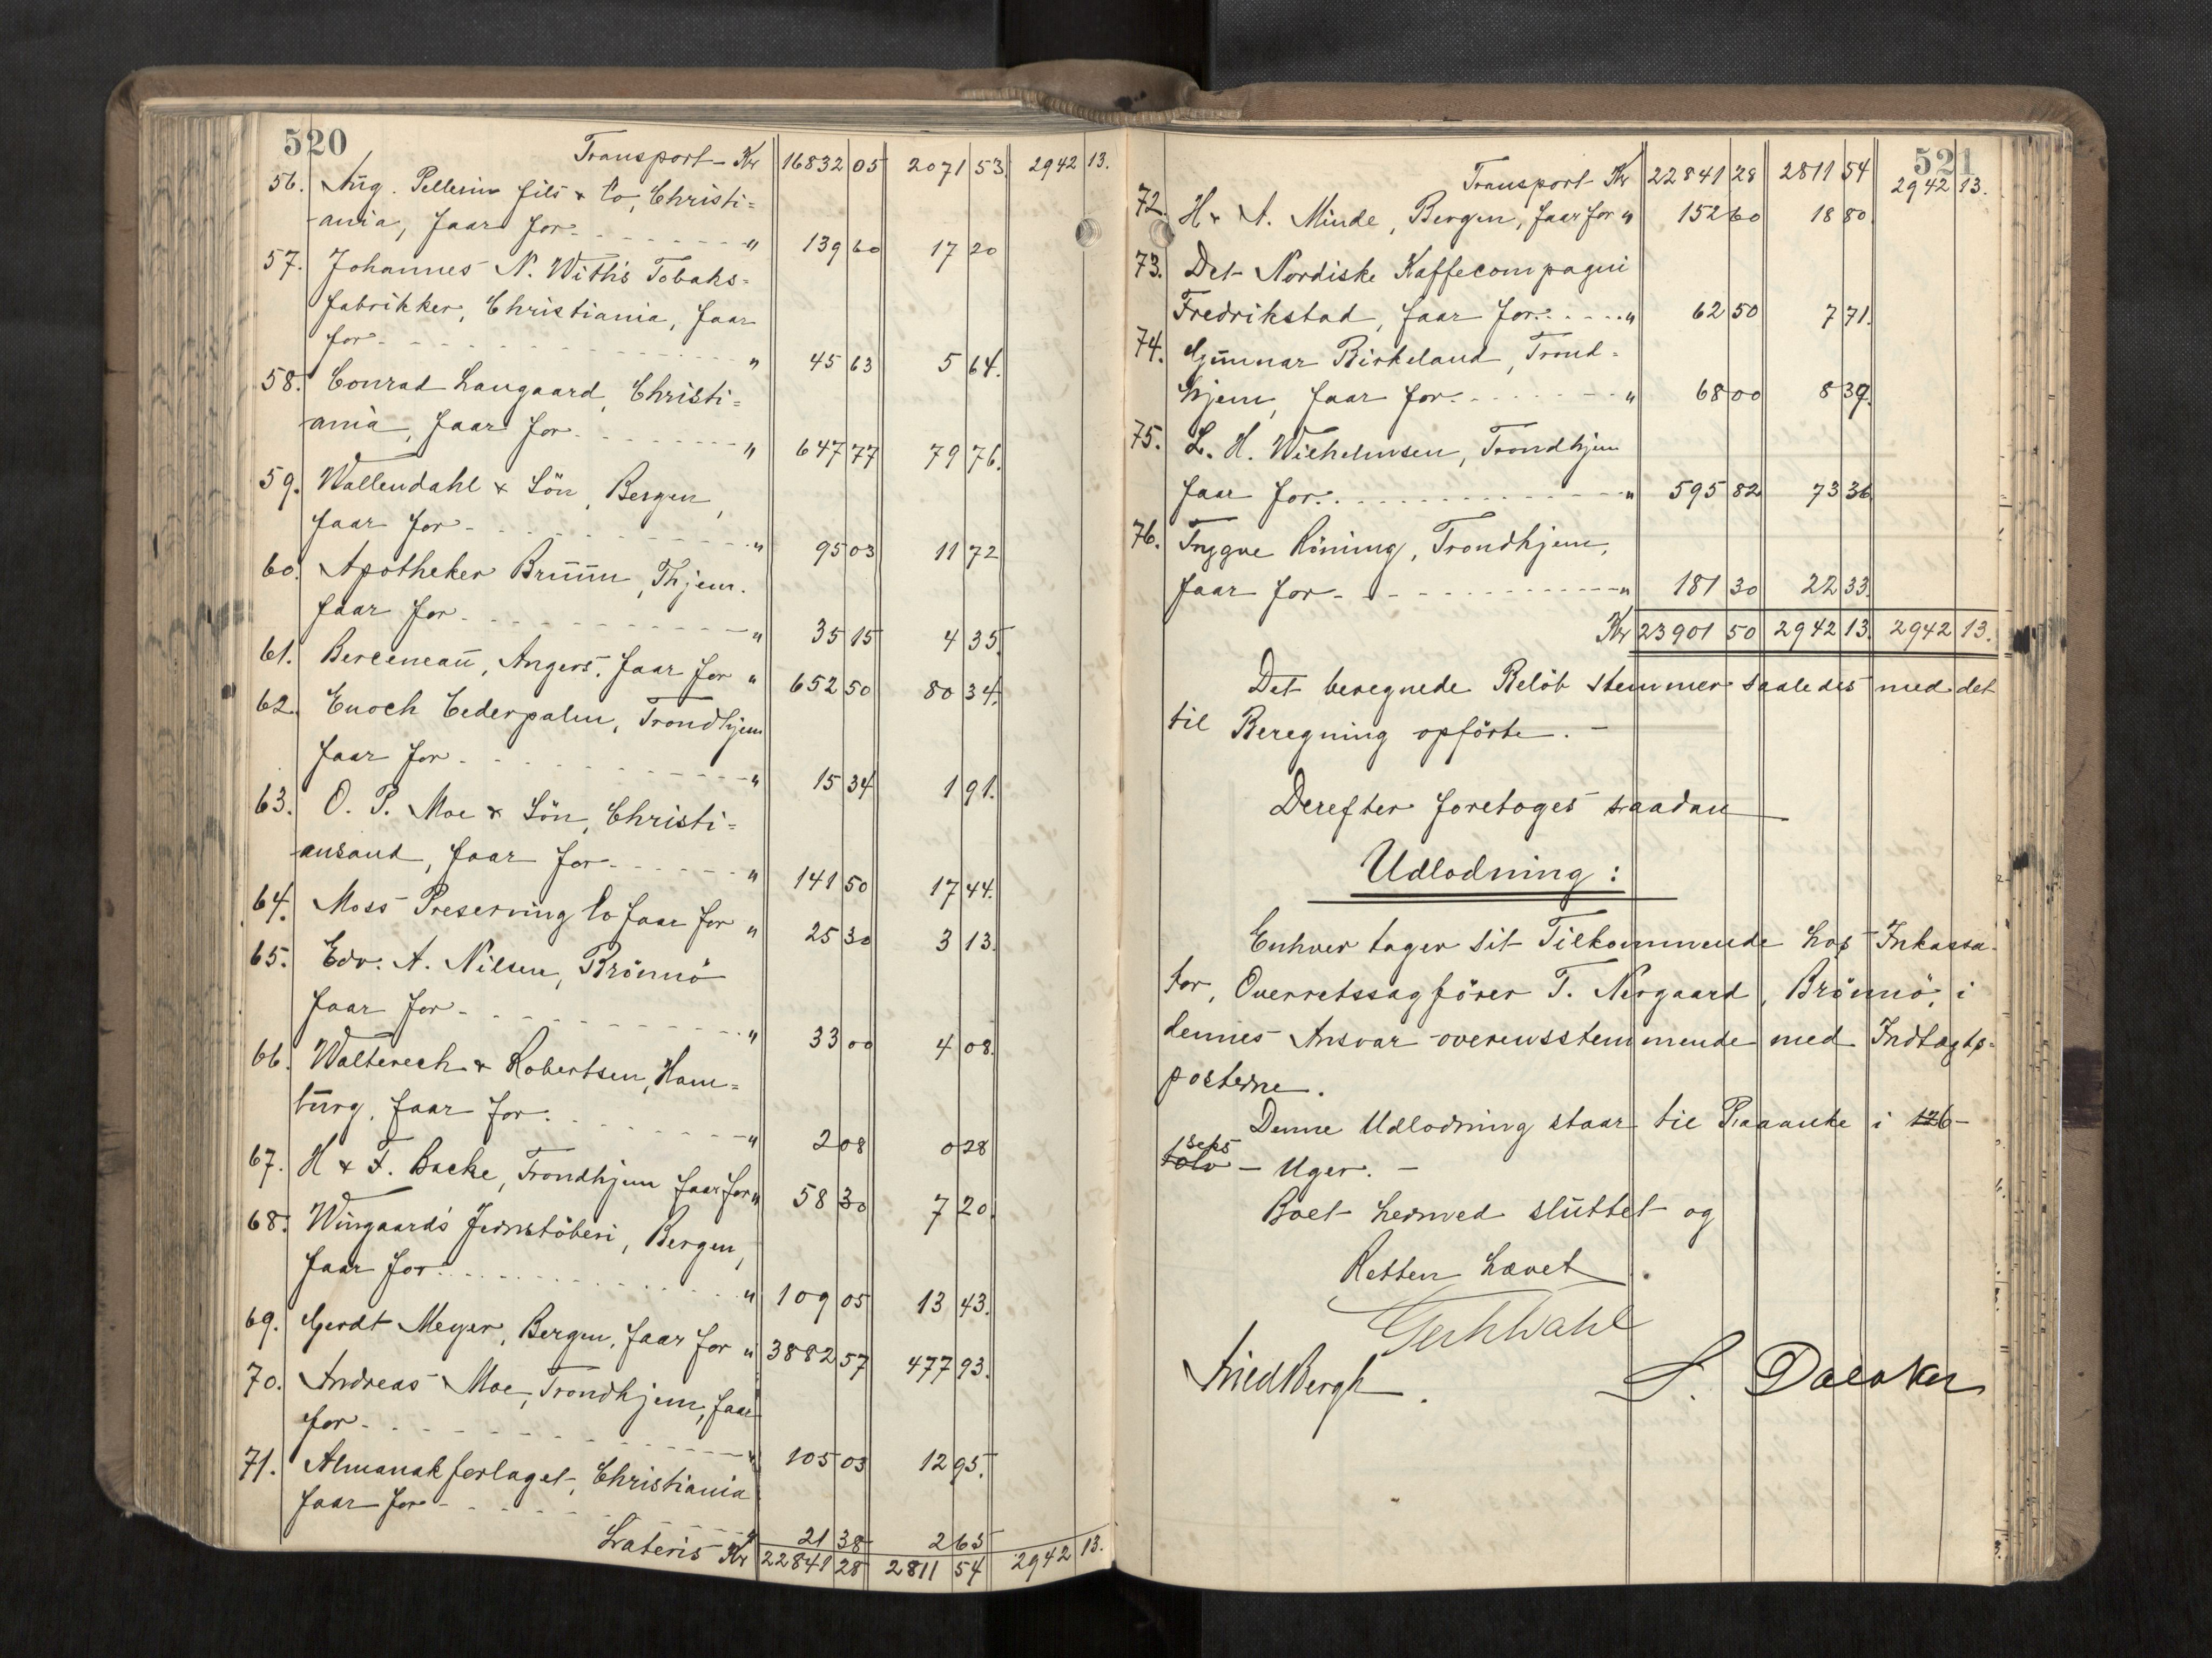 520
Transport Kr 16832 05 2071 53. 2942 13.
56. Aug. Pellerin fils & Co, Christi=
ania, faar for " 139 60 17 20
57. Johannes N. With's Tobaks=
fabrikker, Christiania, faar
for " 45 63 5 64.
58. Conrad Langaard, Christi=
ania, faar for " 647 77 79 76.
59. Wallendahl & Sön, Bergen,
faar for " 95 03 11 72
60. Apotheker Bruun, Thjem.
faar for " 35 15 4 35.
61. Berceneau, Angers. faar for " 652 50 80 34.
62. Enoch Cederpalm, Trondhjem
faar for " 15 34 1 91.
63. O. P. Moe & Sön, Christi=
ansand, faar for " 141 50 17 44.
64. Moss Preserving Co faar for " 25 30 3 13.
65. Edv. A. Nilsen, Brönnö
faar for " 33 00 4 08.
66. Walterech & Robertsen, Ham=
burg, faar for. " 2 08 0 28
67. H & F. Backe, Trondhjem faar for " 58 30 7 20.
68. Wingaards Jernstöberi, Bergen,
faar for " 109 05 13 43.
69. Gerdt Meyer, Bergen, faar for " 3882 57 477 93.
70. Andreas Moe, Trondhjem, faar
for " 105 03 12 95.
71. Almanakforlaget, Christiania
faar for " 21 38 2 63
Lateris Kr 22841 28 2811 54 2942 13.
521
Transport Kr 22841 28 2811 54 2942 13.
72. H & A. Minde, Bergen, faar for " 152 60 18 80.
73. Det Nordiske Kaffecompagni
Fredrikstad, faar for " 62 50 7 71.
74. Gunnar Birkeland, Trond=
hjem, faar for " 68 00 8 39.
75. L. H. Wilhelmsen, Trondhjem
faar for " 595 82 73 36
76. Trygve Röning, Trondhjem,
faar for " 181 30 22 33.
Kr 23901 50 2942 13. 2942 13.
Det beregnede Belöb stemmer saaledes med det
til Beregning opförte. -
Derefter foretoges saadan
Udlodning:
Enhver tager sit Tilkommende hos Inkassa-
tor, Overretssagförer T. Nergaard, Brönnö, i
dennes Ansvar overensstemmende med Indtægts=
posterne.
Denne Udlodning staar til Paaanke i 12 6 -
seks
tolv - Uger. -
Boet hermed sluttet og
Retten hævet.